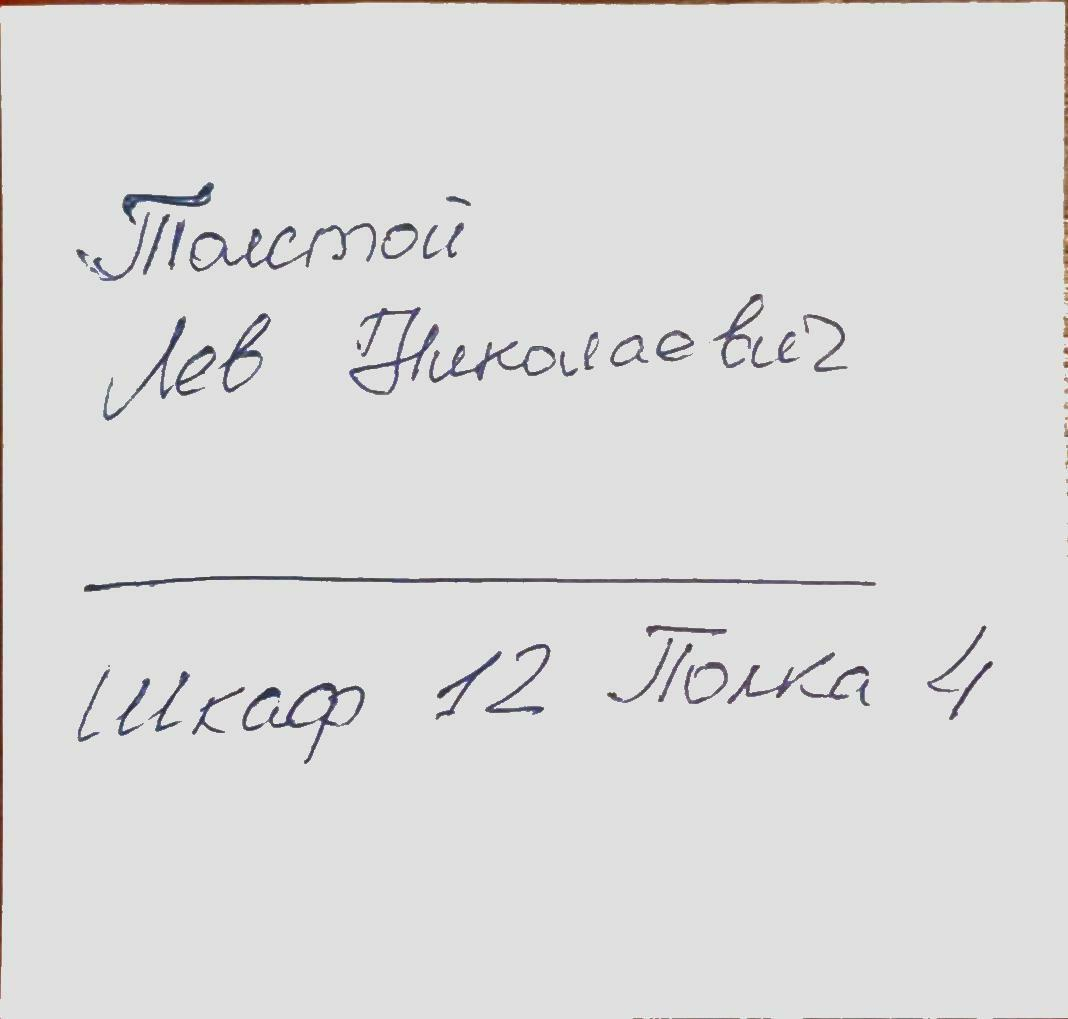 Толстой
Лев Николаевич
Шкаф 12 Полка 4